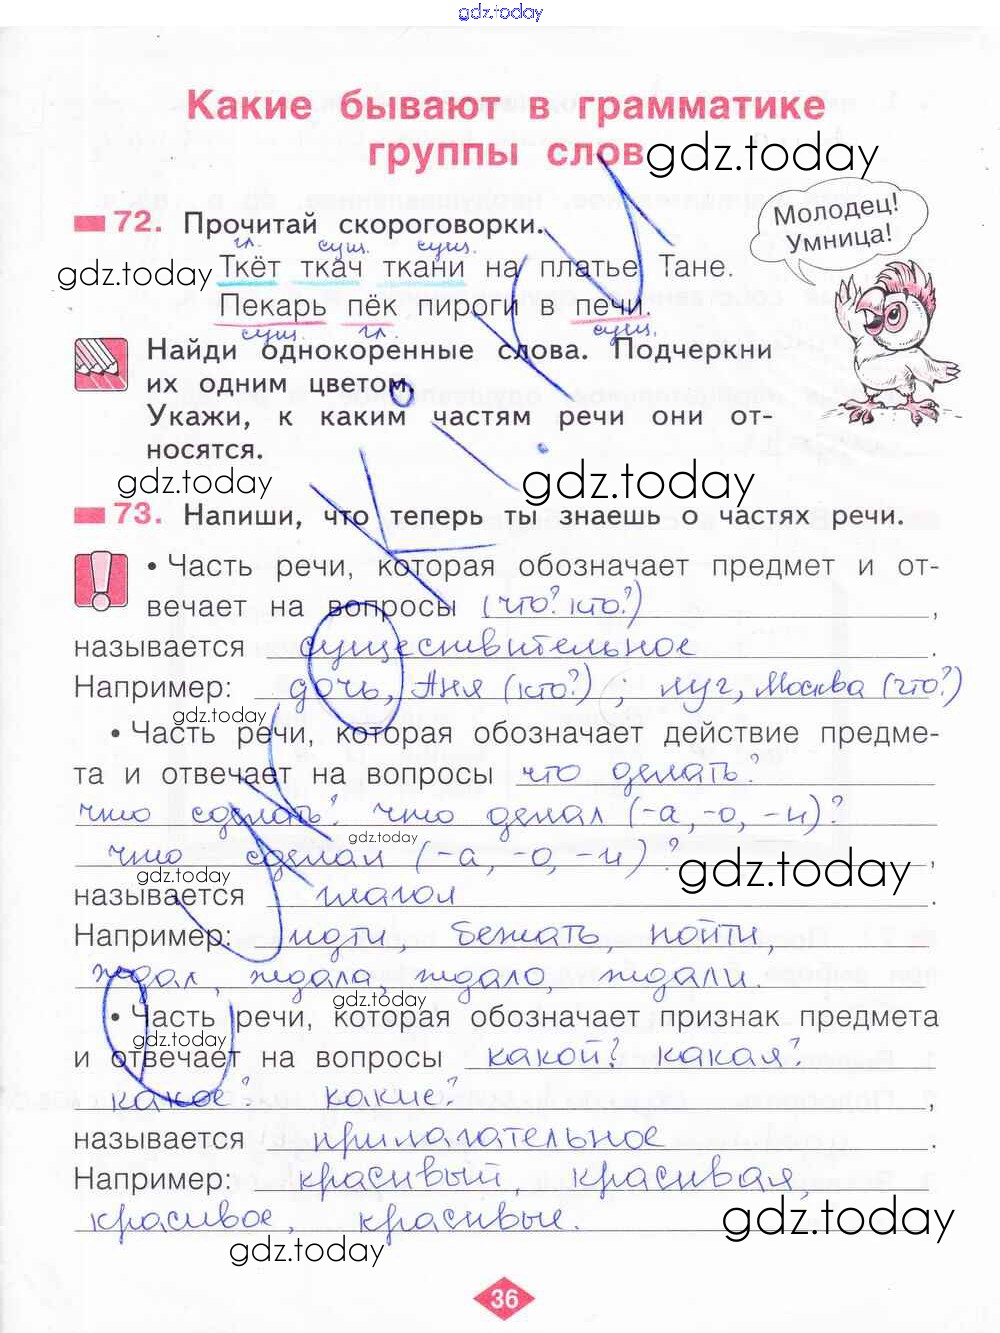 gdz.today
Какие бывают в грамматике
группы слов
gdz.today
72. Прочитай скороговорки.
Молодец!
Умница!
гл. сущ. сущ.
gdz.today
Ткёт ткач ткани на платье Тане.
Пекарь пёк пироги в печи.
сущ. гл. сущ.
Найди однокоренные слова. Подчеркни
их одним цветом.
Укажи, к каким частям речи они от-
носятся.
gdz.today
gdz.today
73. Напиши, что теперь ты знаешь о частях речи.
• Часть речи, которая обозначает предмет и от-
вечает на вопросы (что? кто?) ,
называется существительное .
Например: дочь, Аня (кто?); луг, Москва (что?)
gdz.today
• Часть речи, которая обозначает действие предме-
та и отвечает на вопросы что делать?
что сделать? что делал (-а, -о, -и)?
gdz.today
что сделал (-а, -о, -и)? ,
gdz.today
gdz.today
называется глагол .
Например: идти, бежать, пойти,
ждал, ждала, ждало, ждали.
gdz.today
• Часть речи, которая обозначает признак предмета
gdz.today
и отвечает на вопросы какой? какая?
какое? какие? ,
называется прилагательное .
Например: красивый, красивая,
красивое, красивые.
gdz.today
gdz.today
36